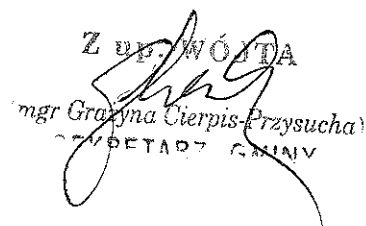 Z up. WÓJTA
mgr Grażyna Cierpis-Przysucha
SEKRETARZ GMINY